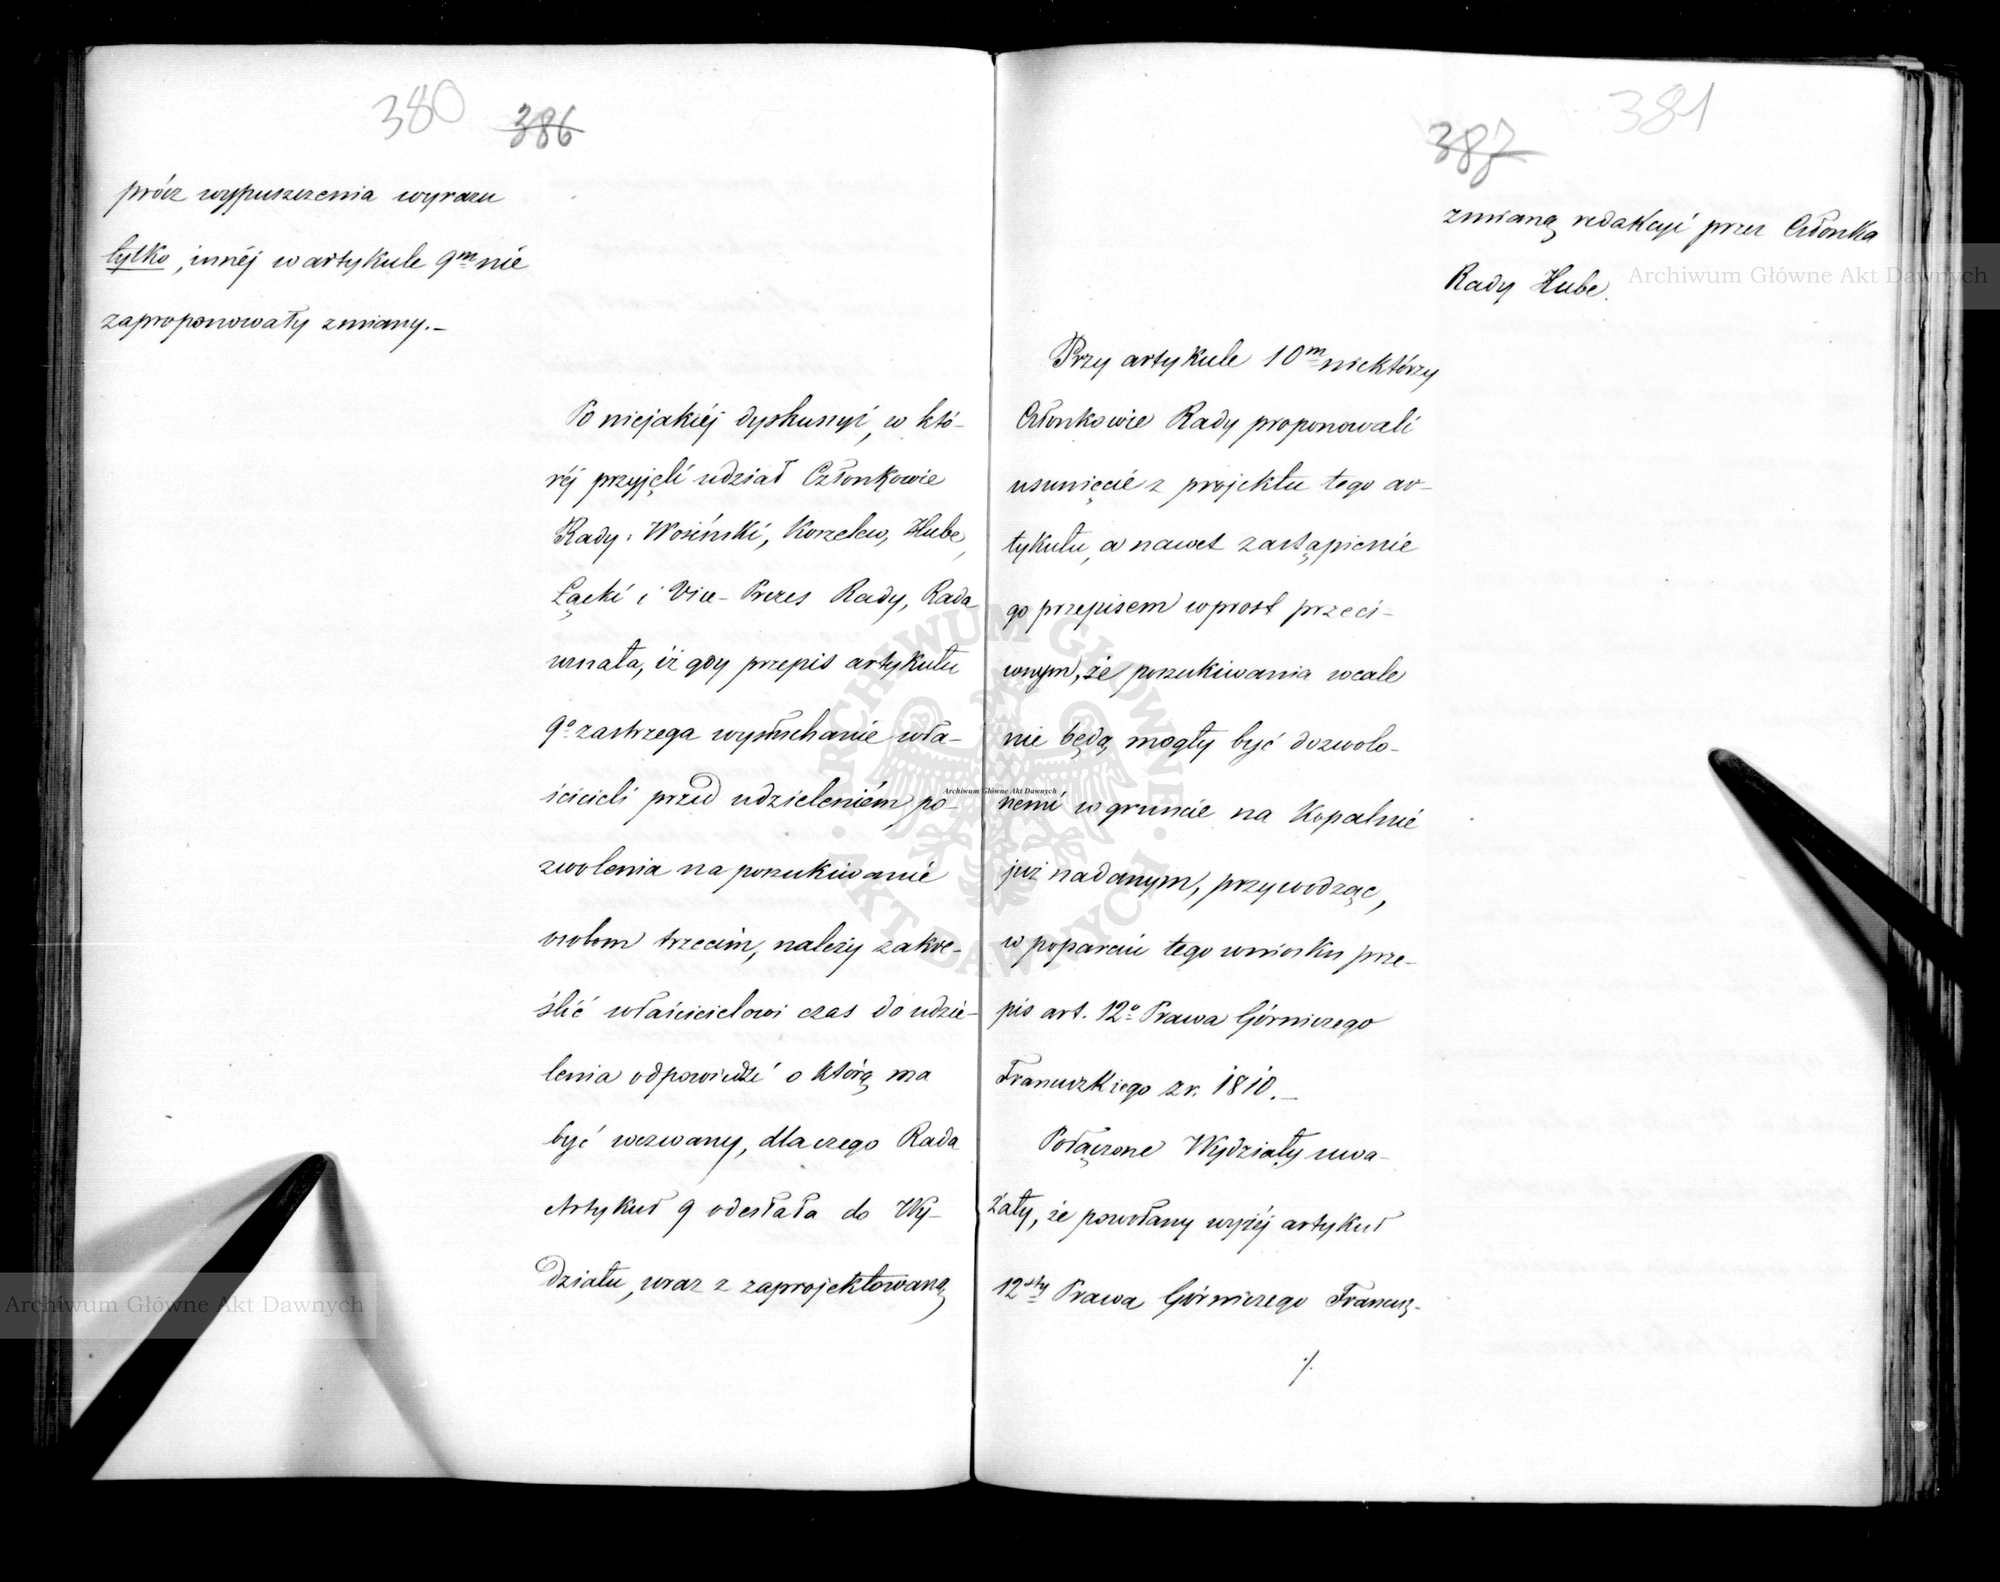 380
386
prócz wypuszczenia wyrazu
tylko, innéj w artykule 9m nie
zaproponowały zmiany.—
Po niejakiéj dyskussyi, w któ-
réj przyjęli udział Członkowie
Rady: Wosiński, Korzelew, Hube,
Łącki i Vice-Prezes Rady, Rada
uznała, iż gdy przepis artykułu
9o zastrzega wysłuchanie wła-
ścicieli przed udzieleniém po-
zwolenia na poszukiwanie
osobom trzecim, należy zakre-
ślić właścicielowi czas do udzie-
lenia odpowiedzi o którą ma
być wezwany, dlaczego Rada
Artykuł 9 odesłała do Wy-
działu, wraz z zaprojektowaną
381
387
zmianą redakcyi przez Członka
Rady Hube.
Przy artykule 10m niektórzy
Członkowie Rady proponowali
usunięcie z projektu tego ar-
tykułu, a nawet zastąpienie
go przepisem wprost przeci-
wnym, że poszukiwania wcale
nie będą mogły być dozwolo-
nemi w gruncie na Kopalnie
już nadanym, przywodząc,
w poparciu tego wniosku prze-
pis art. 12o Prawa Górniczego
Francuzkiego z r. 1810.—
Połączone Wydziały uwa-
żały, że powołany wyżéj artykuł
12sty Prawa Górniczego Francuz-
./.
Archiwum Główne Akt Dawnych
Archiwum Główne Akt Dawnych
Archiwum Główne Akt Dawnych
ARCHIWUM GŁÓWNE · AKT DAWNYCH ·